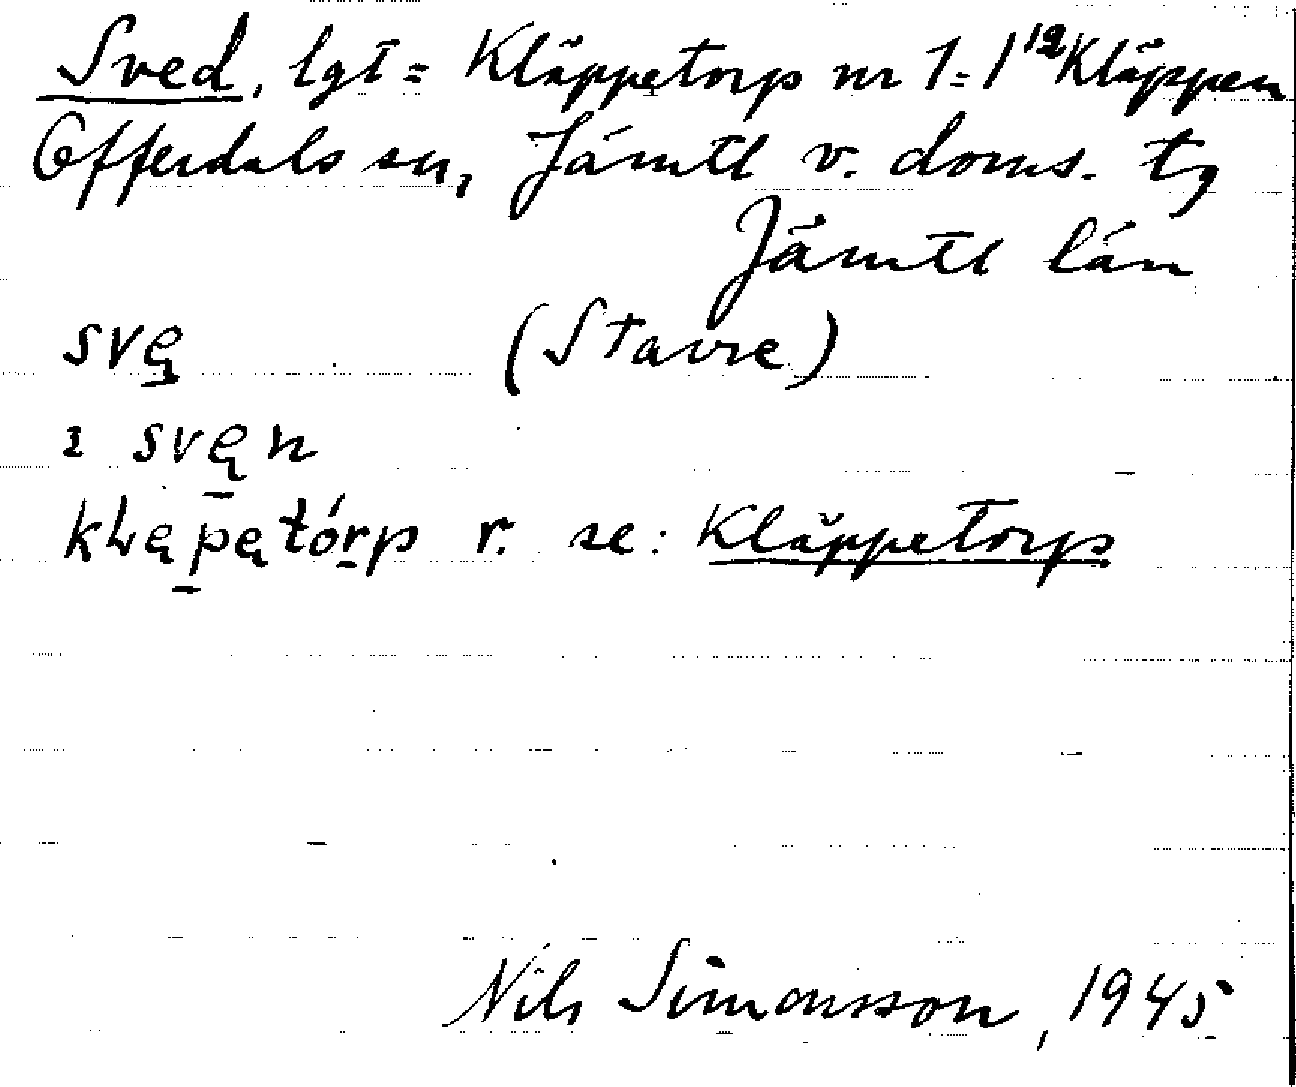 Sved, lgt = Kläppetorp nr 1 = 1¹² Kläppen
Offerdals sn, Jämtl v. doms. tg
Jämtl län
svę (Stavre)
ı svęn
kƚępętórp r. se: Kläppetorp
Nils Simonsson, 1945